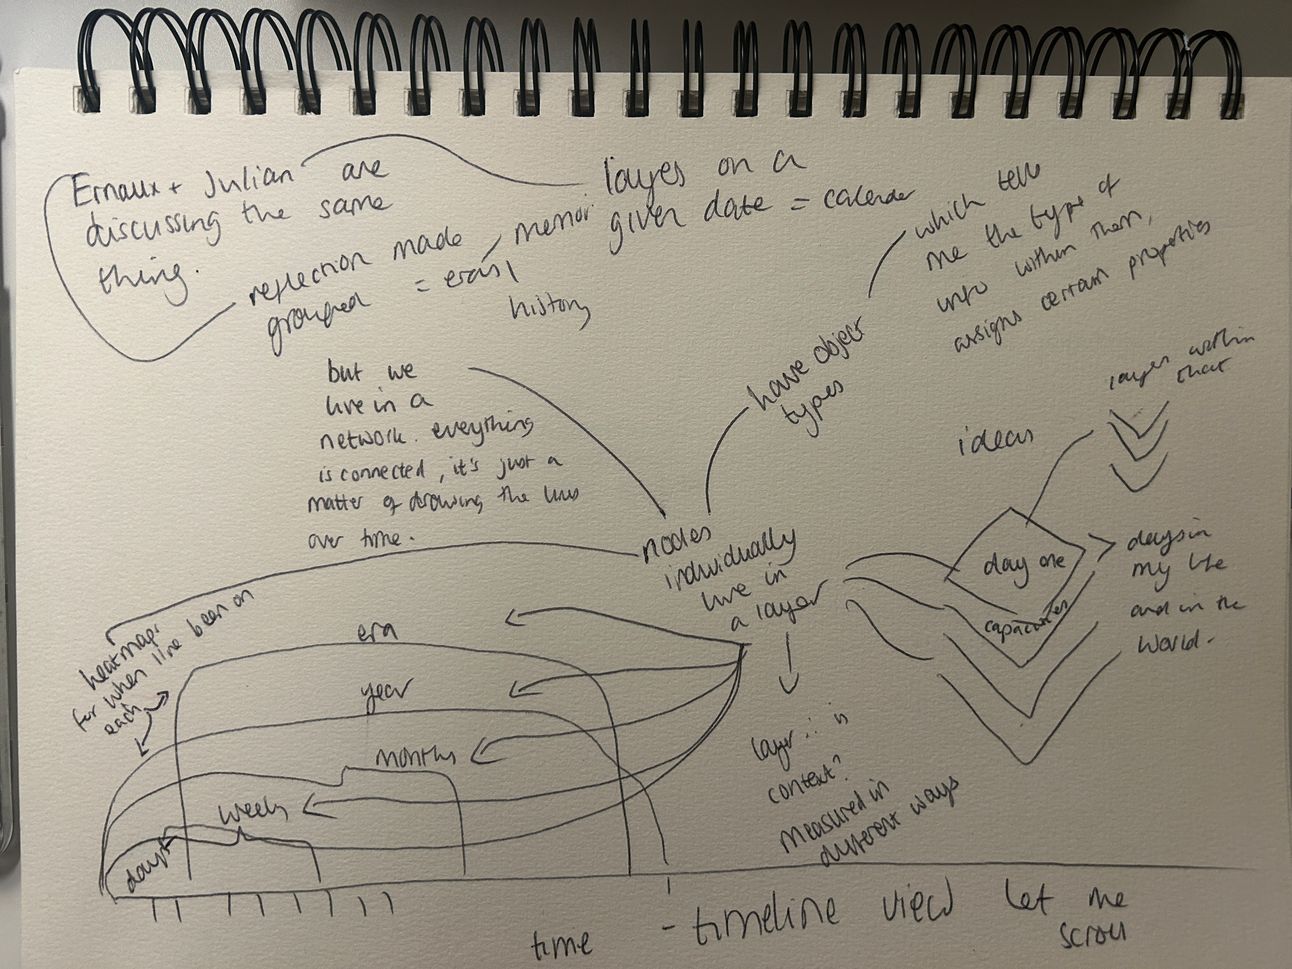 Ernaux + Julian are
discussing the same
thing.
layes on a
given date = calender
reflection made
grouped = eras /
history
which tells
me the type of
info within them,
assigns certain properties
have object
types
but we
live in a
network. everything
is connected, it's just a
matter of drawing the lines
over time.
nodes
individually
live in
a layer
ideas
layers within
that
day one
capacities
days in
my life
and in the
world.
heatmap
for when line been on
each
era
year
months
weeks
days
layer :: is
context?
measured in
different ways
time
- timeline view let me
scroll